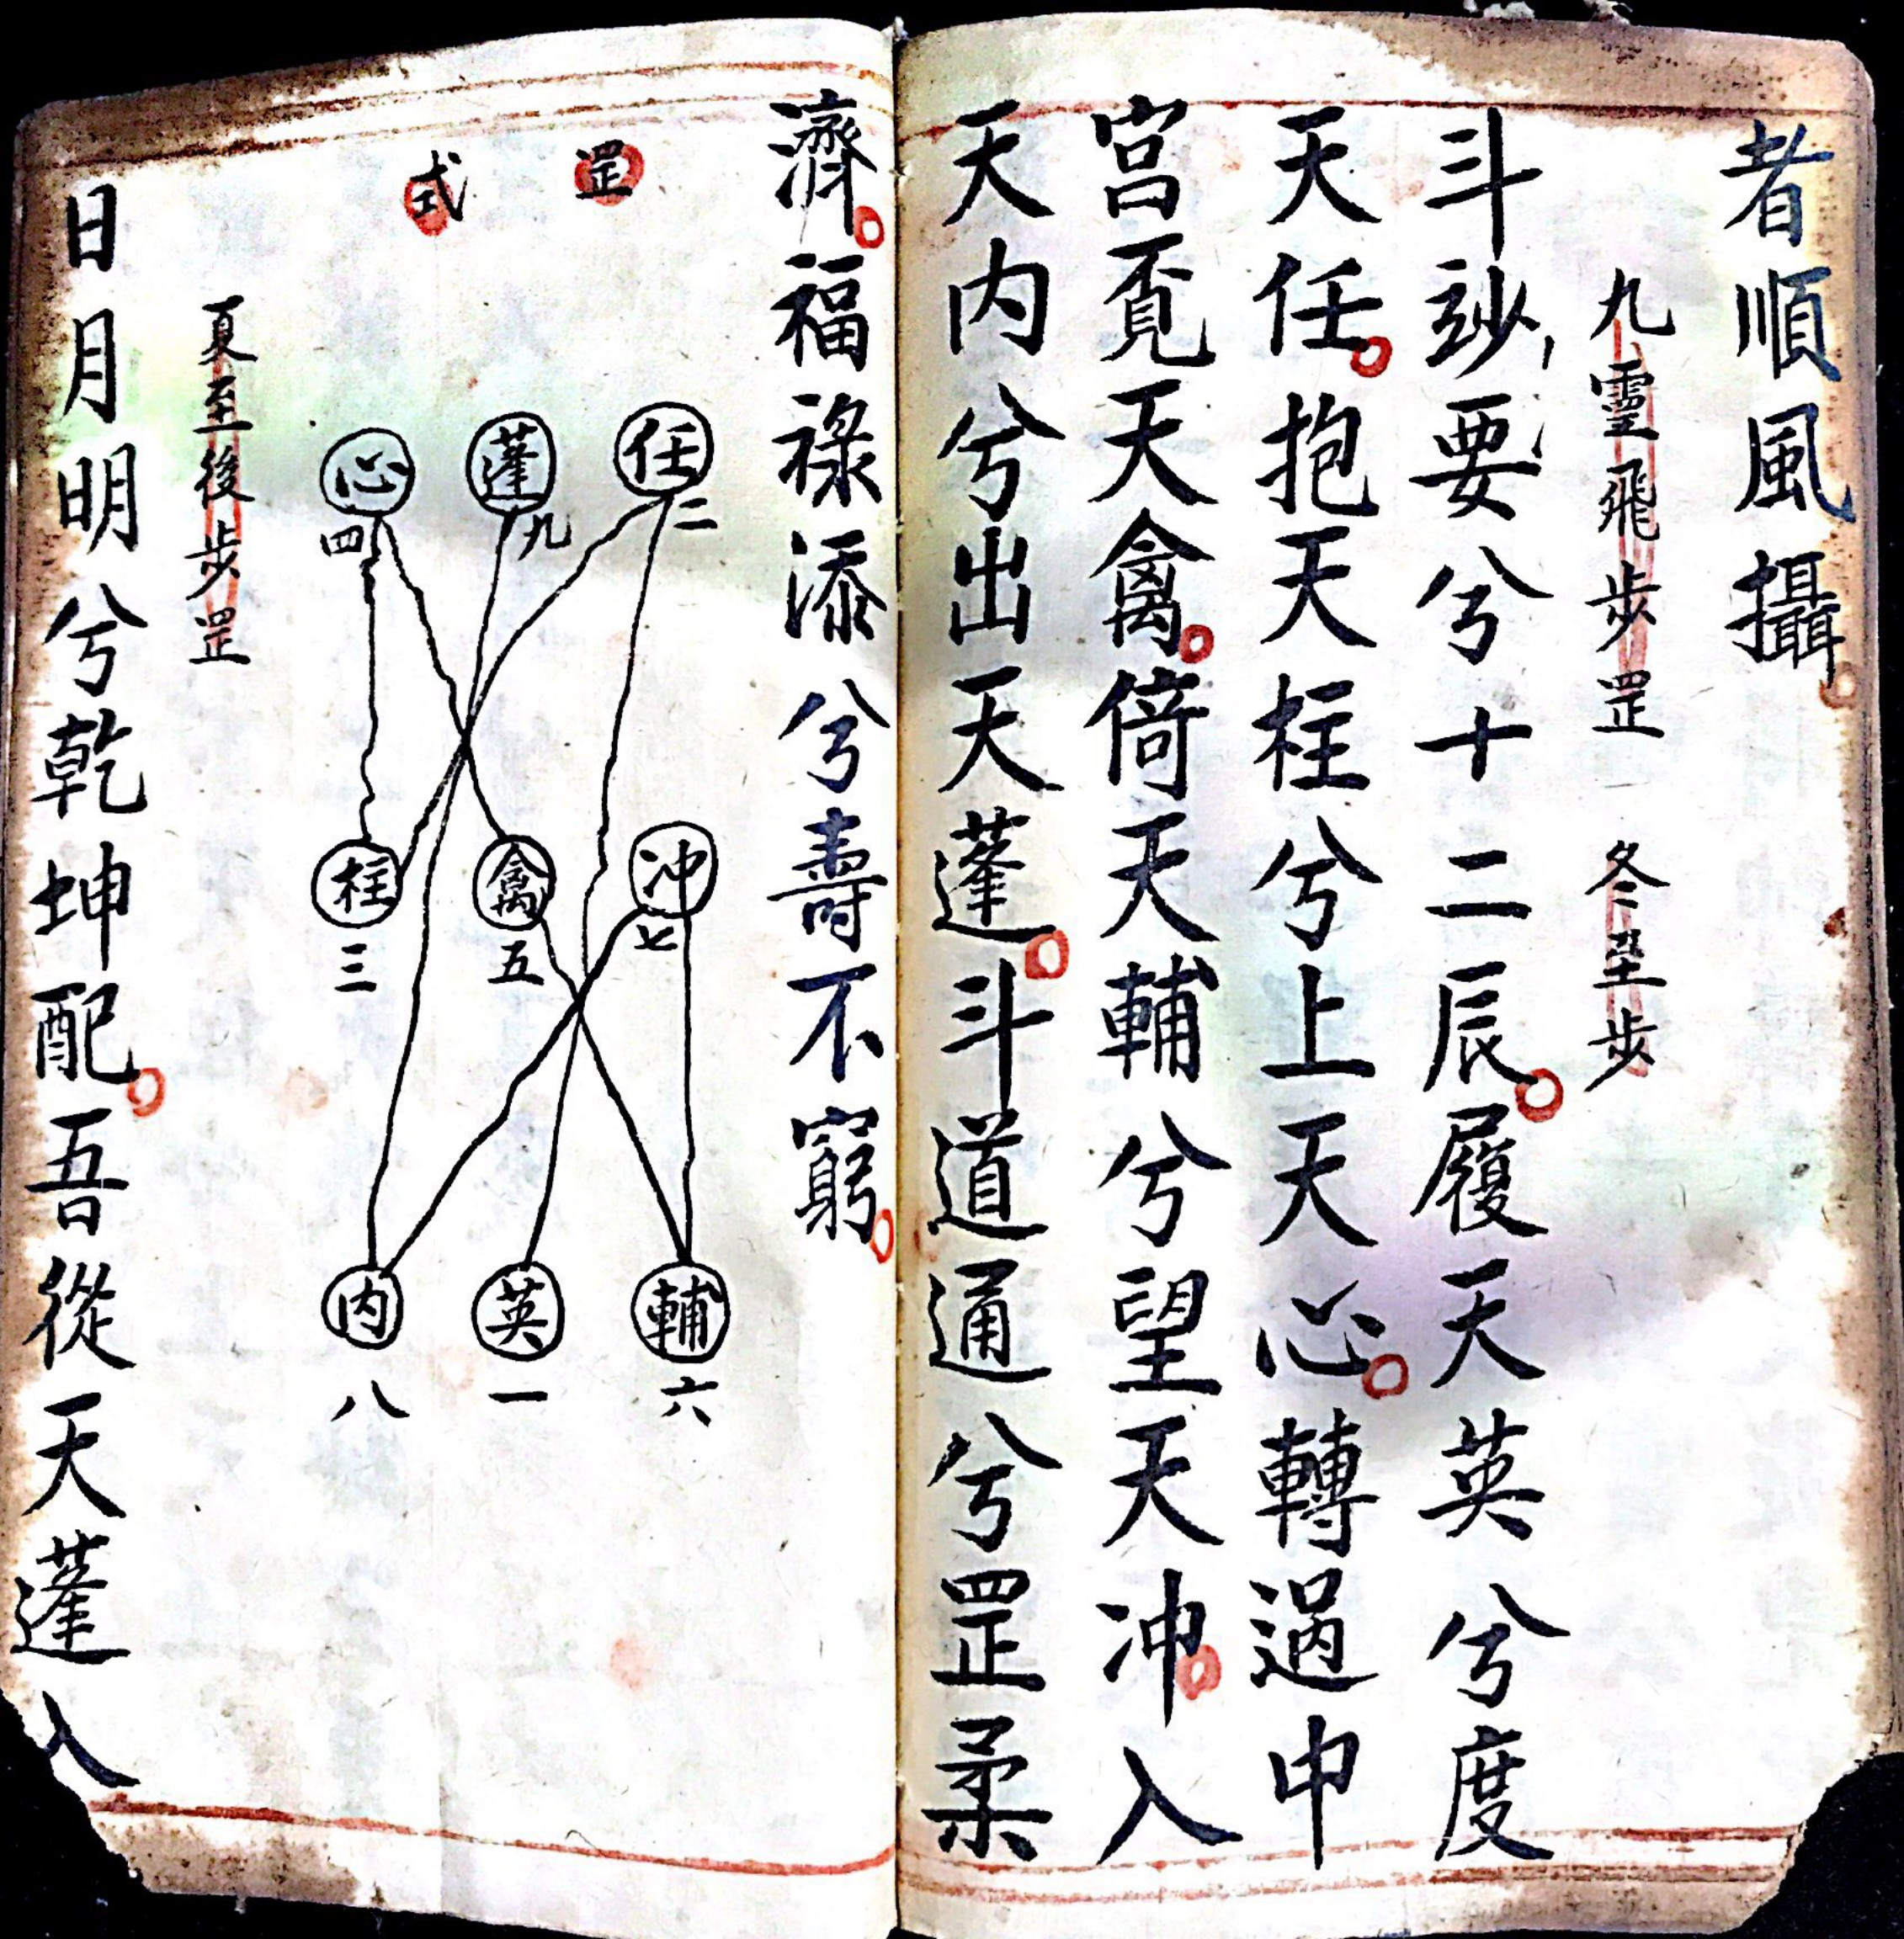 者順風攝
九靈飛步罡 冬至步
斗玅要兮十二辰履天英兮度
天任抱天柱兮上天心轉過中
宮覓天禽倚天輔兮望天冲入
天内兮出天蓬斗道通兮罡柔
濟福祿添兮壽不窮
罡式
任二 蓬九 心四
冲七 禽五 柱三
輔六 英一 内八
夏至後步罡
日月明兮乾坤配吾從天蓬入